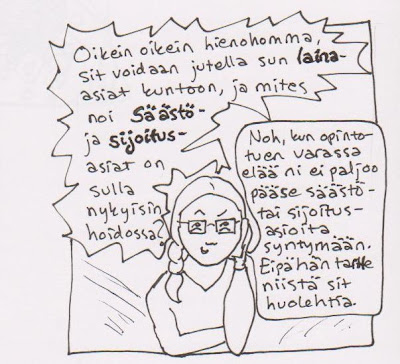 Oikein oikein hienohomma,
sit voidaan jutella sun laina-
asiat kuntoon, ja mites
noi säästö-
ja sijoitus-
asiat on
sulla
nykyisin
hoidossa?
Noh, kun opinto-
tuen varassa
elää ni ei paljoo
pääse säästö-
tai sijoitus-
asioita
syntymään.
Eipähän tarvitte
niistä sit
huolehtia.